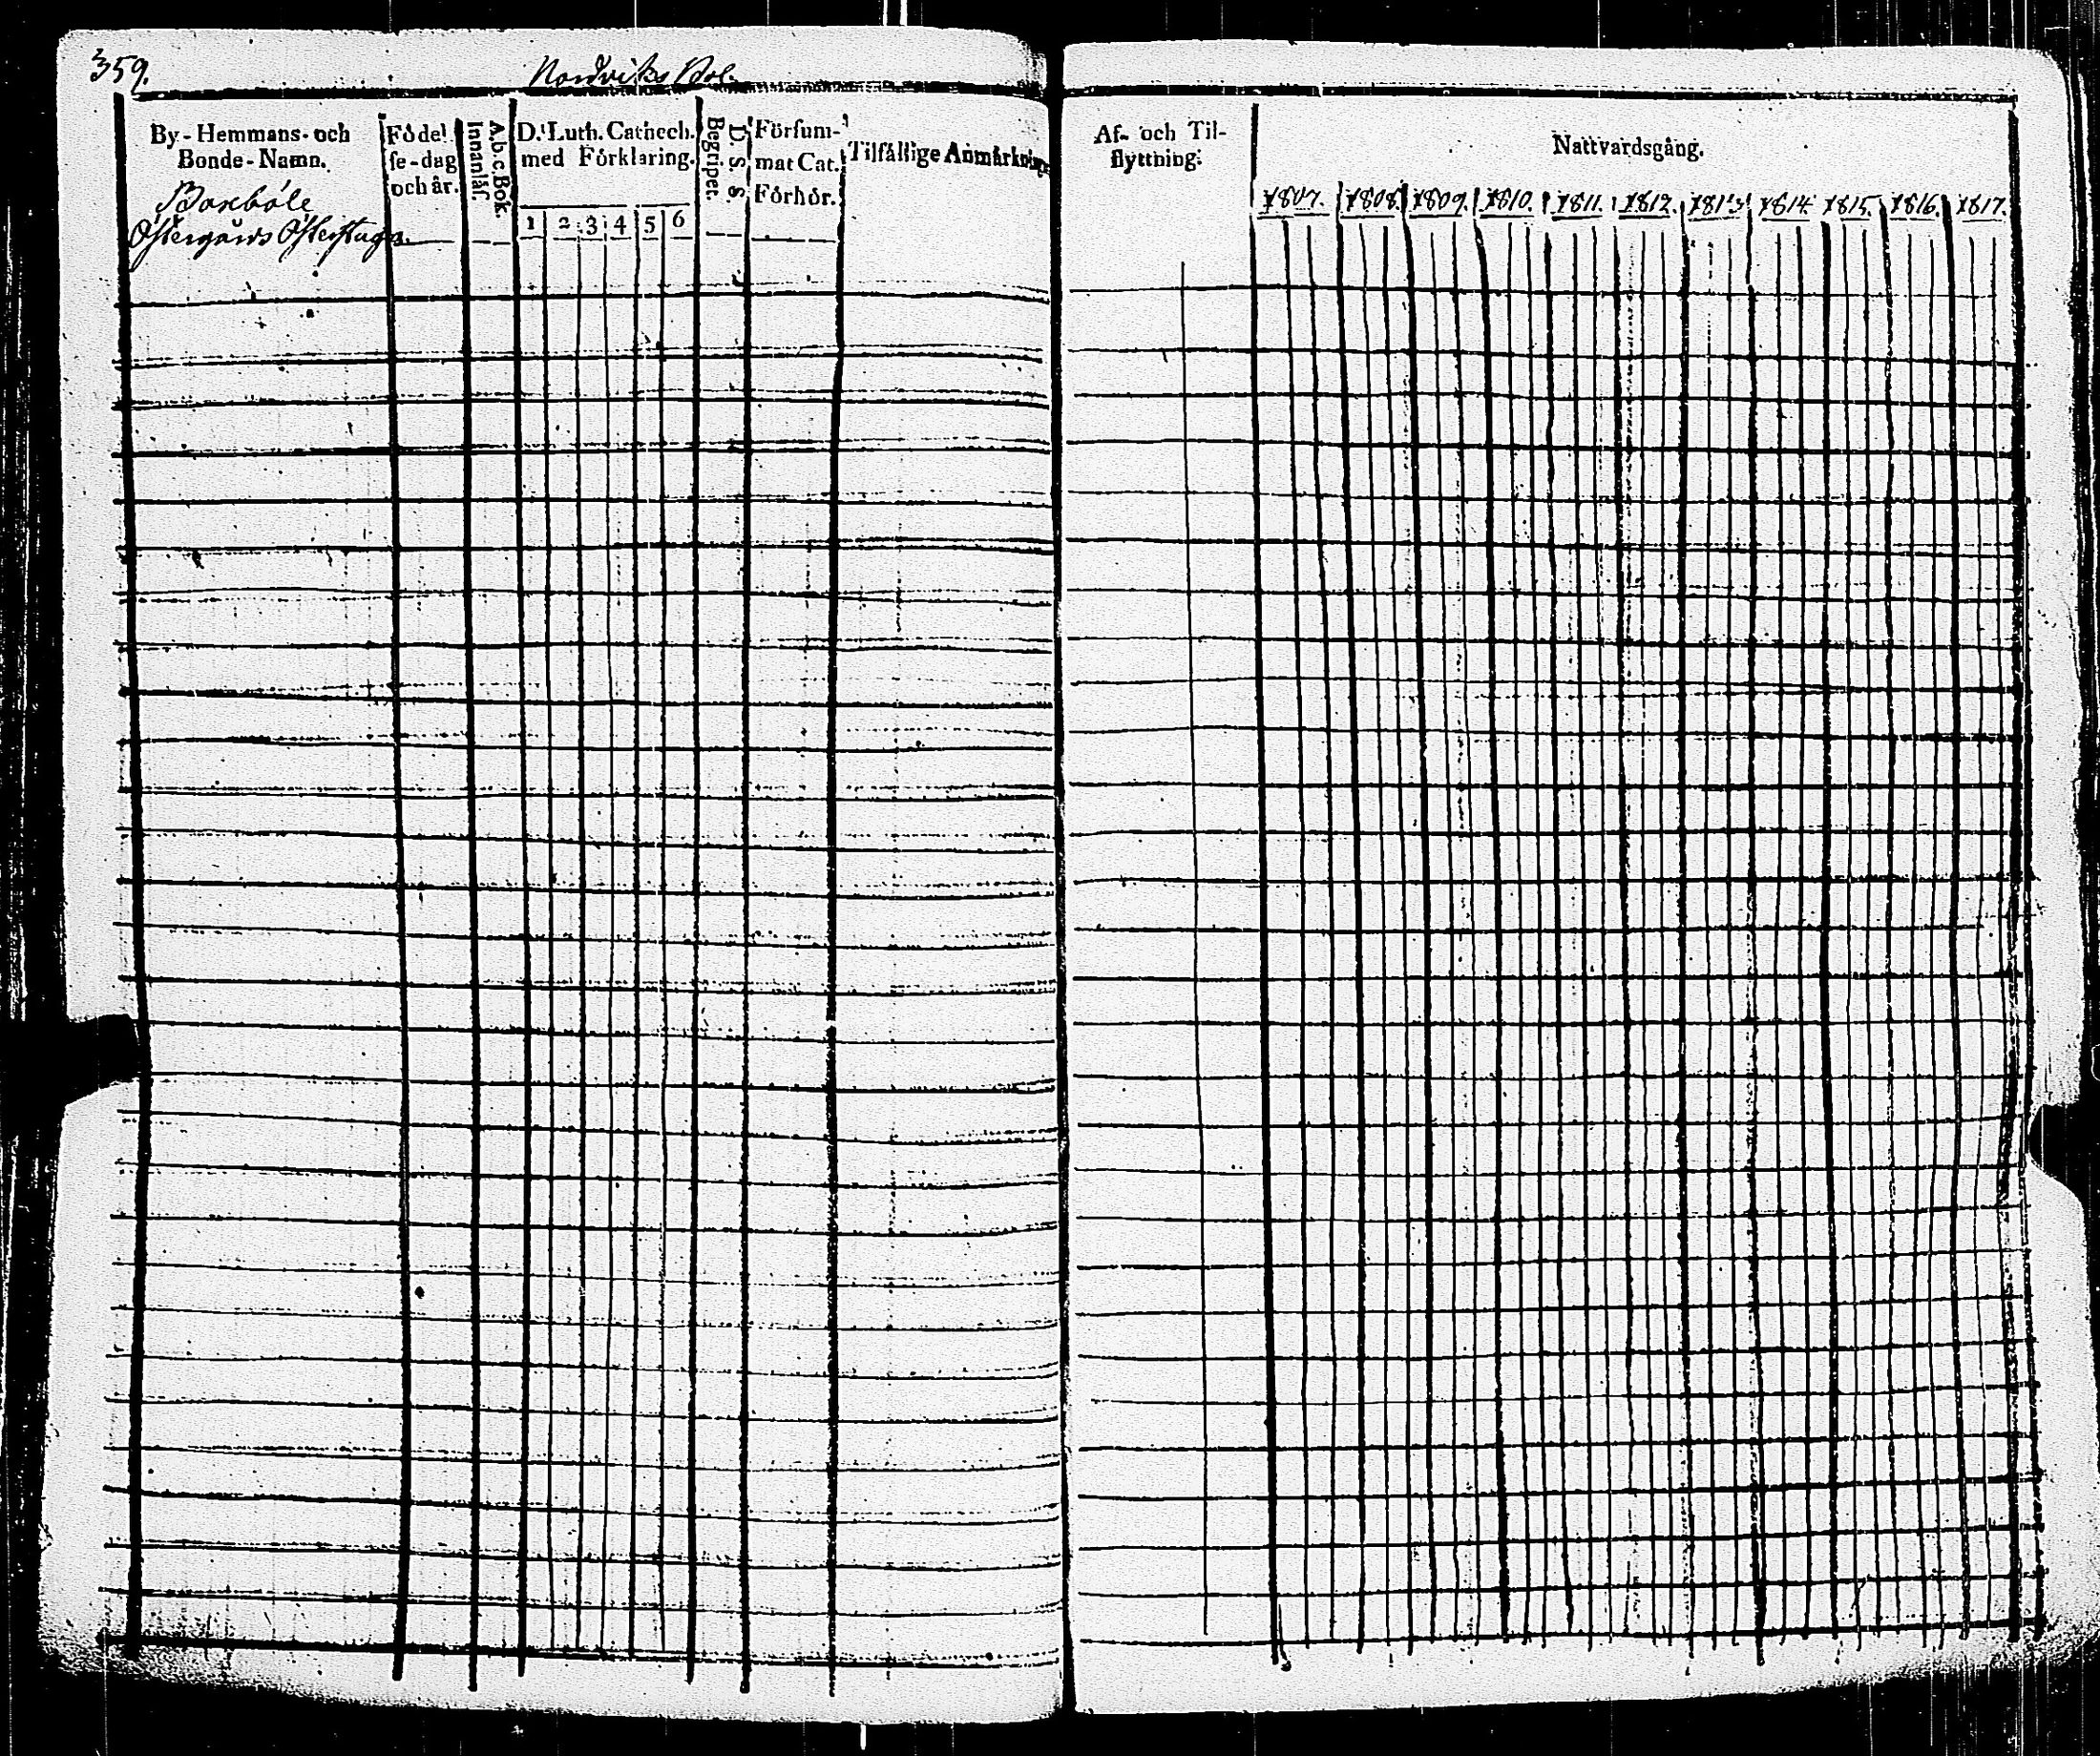 359.
Nordviks Bol.
By-Hemmans- och
Bonde-Namn.
Boxböle
Östergårds Österstuga.
Födel-
se-dag
och år.
A.b.c.Bok.
Innanläs.
D. Luth. Cathech.
med Förklaring.
1 2 3 4 5 6
D. S. S.
Begripet.
Försum-
mat Cat.
Förhör.
Tilfällige Anmärkningar
Af- och Til-
flyttning.
Nattvardsgång.
1807. 1808. 1809. 1810. 1811. 1812. 1813. 1814. 1815. 1816. 1817.